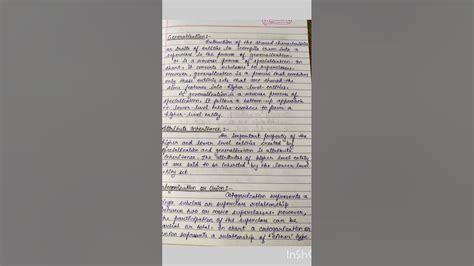 Generalization:-
Extraction of the shared characteristics
or traits of entities to compile them into a
superclass is the process of generalization.
It is a reverse process of specialization. In
short, it converts subclasses to superclasses.
However, generalization is a process that combines
only those entities sets that have shared the
the same features into higher-level entities.
It generalization is a reverse process of
specialization, it follows a bottom-up approach
in lower-level entities combine to form a
higher-level entity.
Attribute Inheritance:-
An important property of the
higher and lower level entities created by
specialization and generalization is attribute
inheritance. The attributes of higher level entity
set are said to be inherited by the lower level
entity set.
Categorization or Union:-
Categorization represents a
single subclass or superclass relationship
between two or more superclasses. However,
the participation of the superclass can be
partial or total. In short a categorization or
union represents a relationship of "either" type
InSh